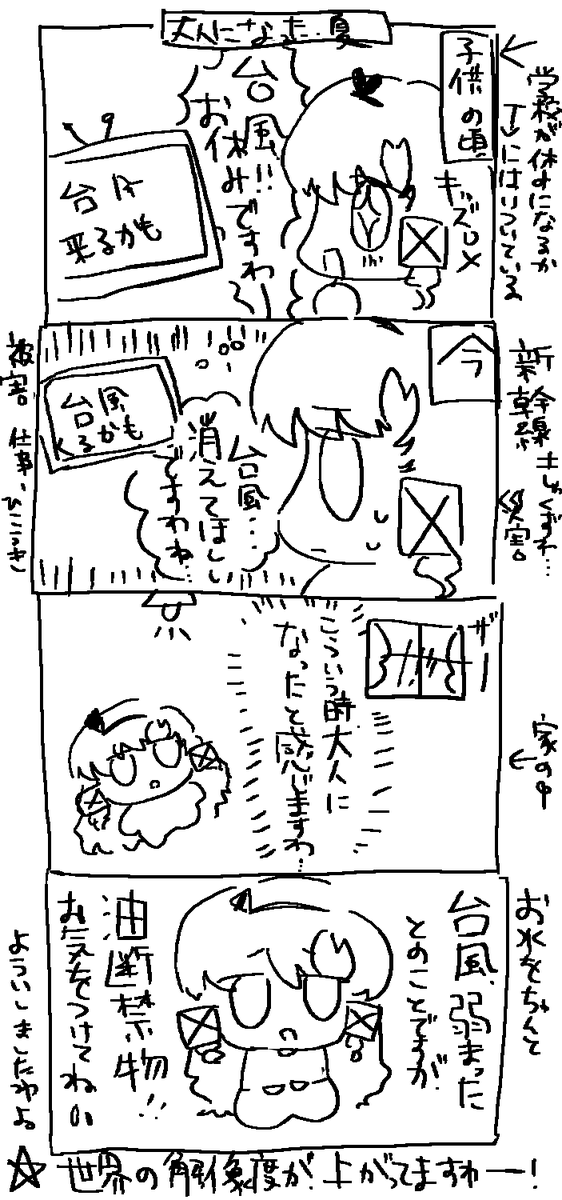 大人になった夏
子供の頃
学校が休みになるか
TVにはりついている
キッズロメ
台風!!
お休みですわ!
台风
来るかも
今
新幹線
災害
台風…
消えてほしい
ですわね…
台風
くるかも
被害
仕事、ひこうき
ザー
家の中
こういう時大人に
なったと感じますわ…
お水をちゃんと
よういしましたわよ。
台風弱まった
とのことですが
油断禁物!!
お気をつけてね
☆世界の解像度が上がってますわー!